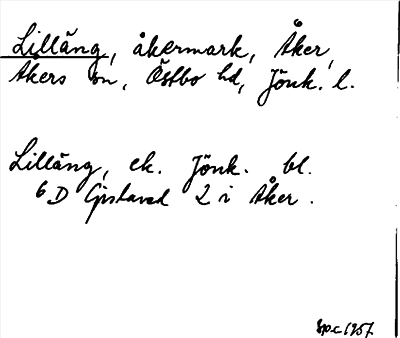 Lilläng, åkermark, Åker,
Åkers sn, Östbo hd, Jönk. l.
Lilläng, ek. Jönk. bl.
6 D Gislaved 2 i Åker.
1957